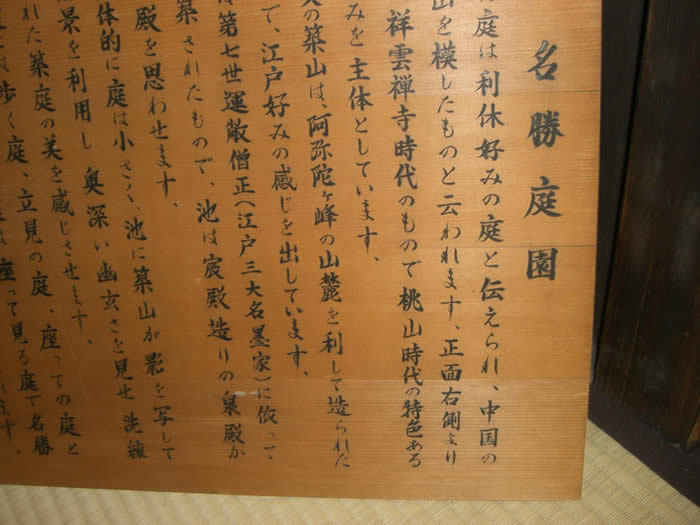 名勝庭園
庭は利休好みの庭と伝えられ、中国の
山を模したものと云われます、正面右側より
祥雲禅寺時代のもので桃山時代の特色ある
みを主体としています、
の築山は、阿弥陀ヶ峰の山麓を利して造られた
で、江戸好みの感じを出しています、
第七世運敞僧正(江戸三大名墨家)に依って、
築されたもので、池は宸殿造りの泉殿か
殿を思わせます、
体的に庭は小さく、池に築山が影を写して
景を利用し奥深い幽玄さを見せ洗練
れた築庭の美を感じさせます、
歩く庭、立見の庭、座っての庭と
座って見る庭で名勝
ます、